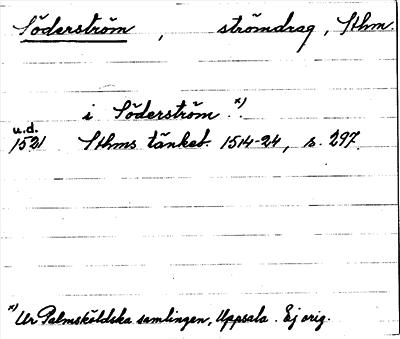 Söderström , strömdrag, Sthm.
i Söderström. x)
u.d.
1521 Sthms tänkeb. 1514-24, s. 297.
x) Ur Palmsköldska samlingen, Uppsala. Ej orig.